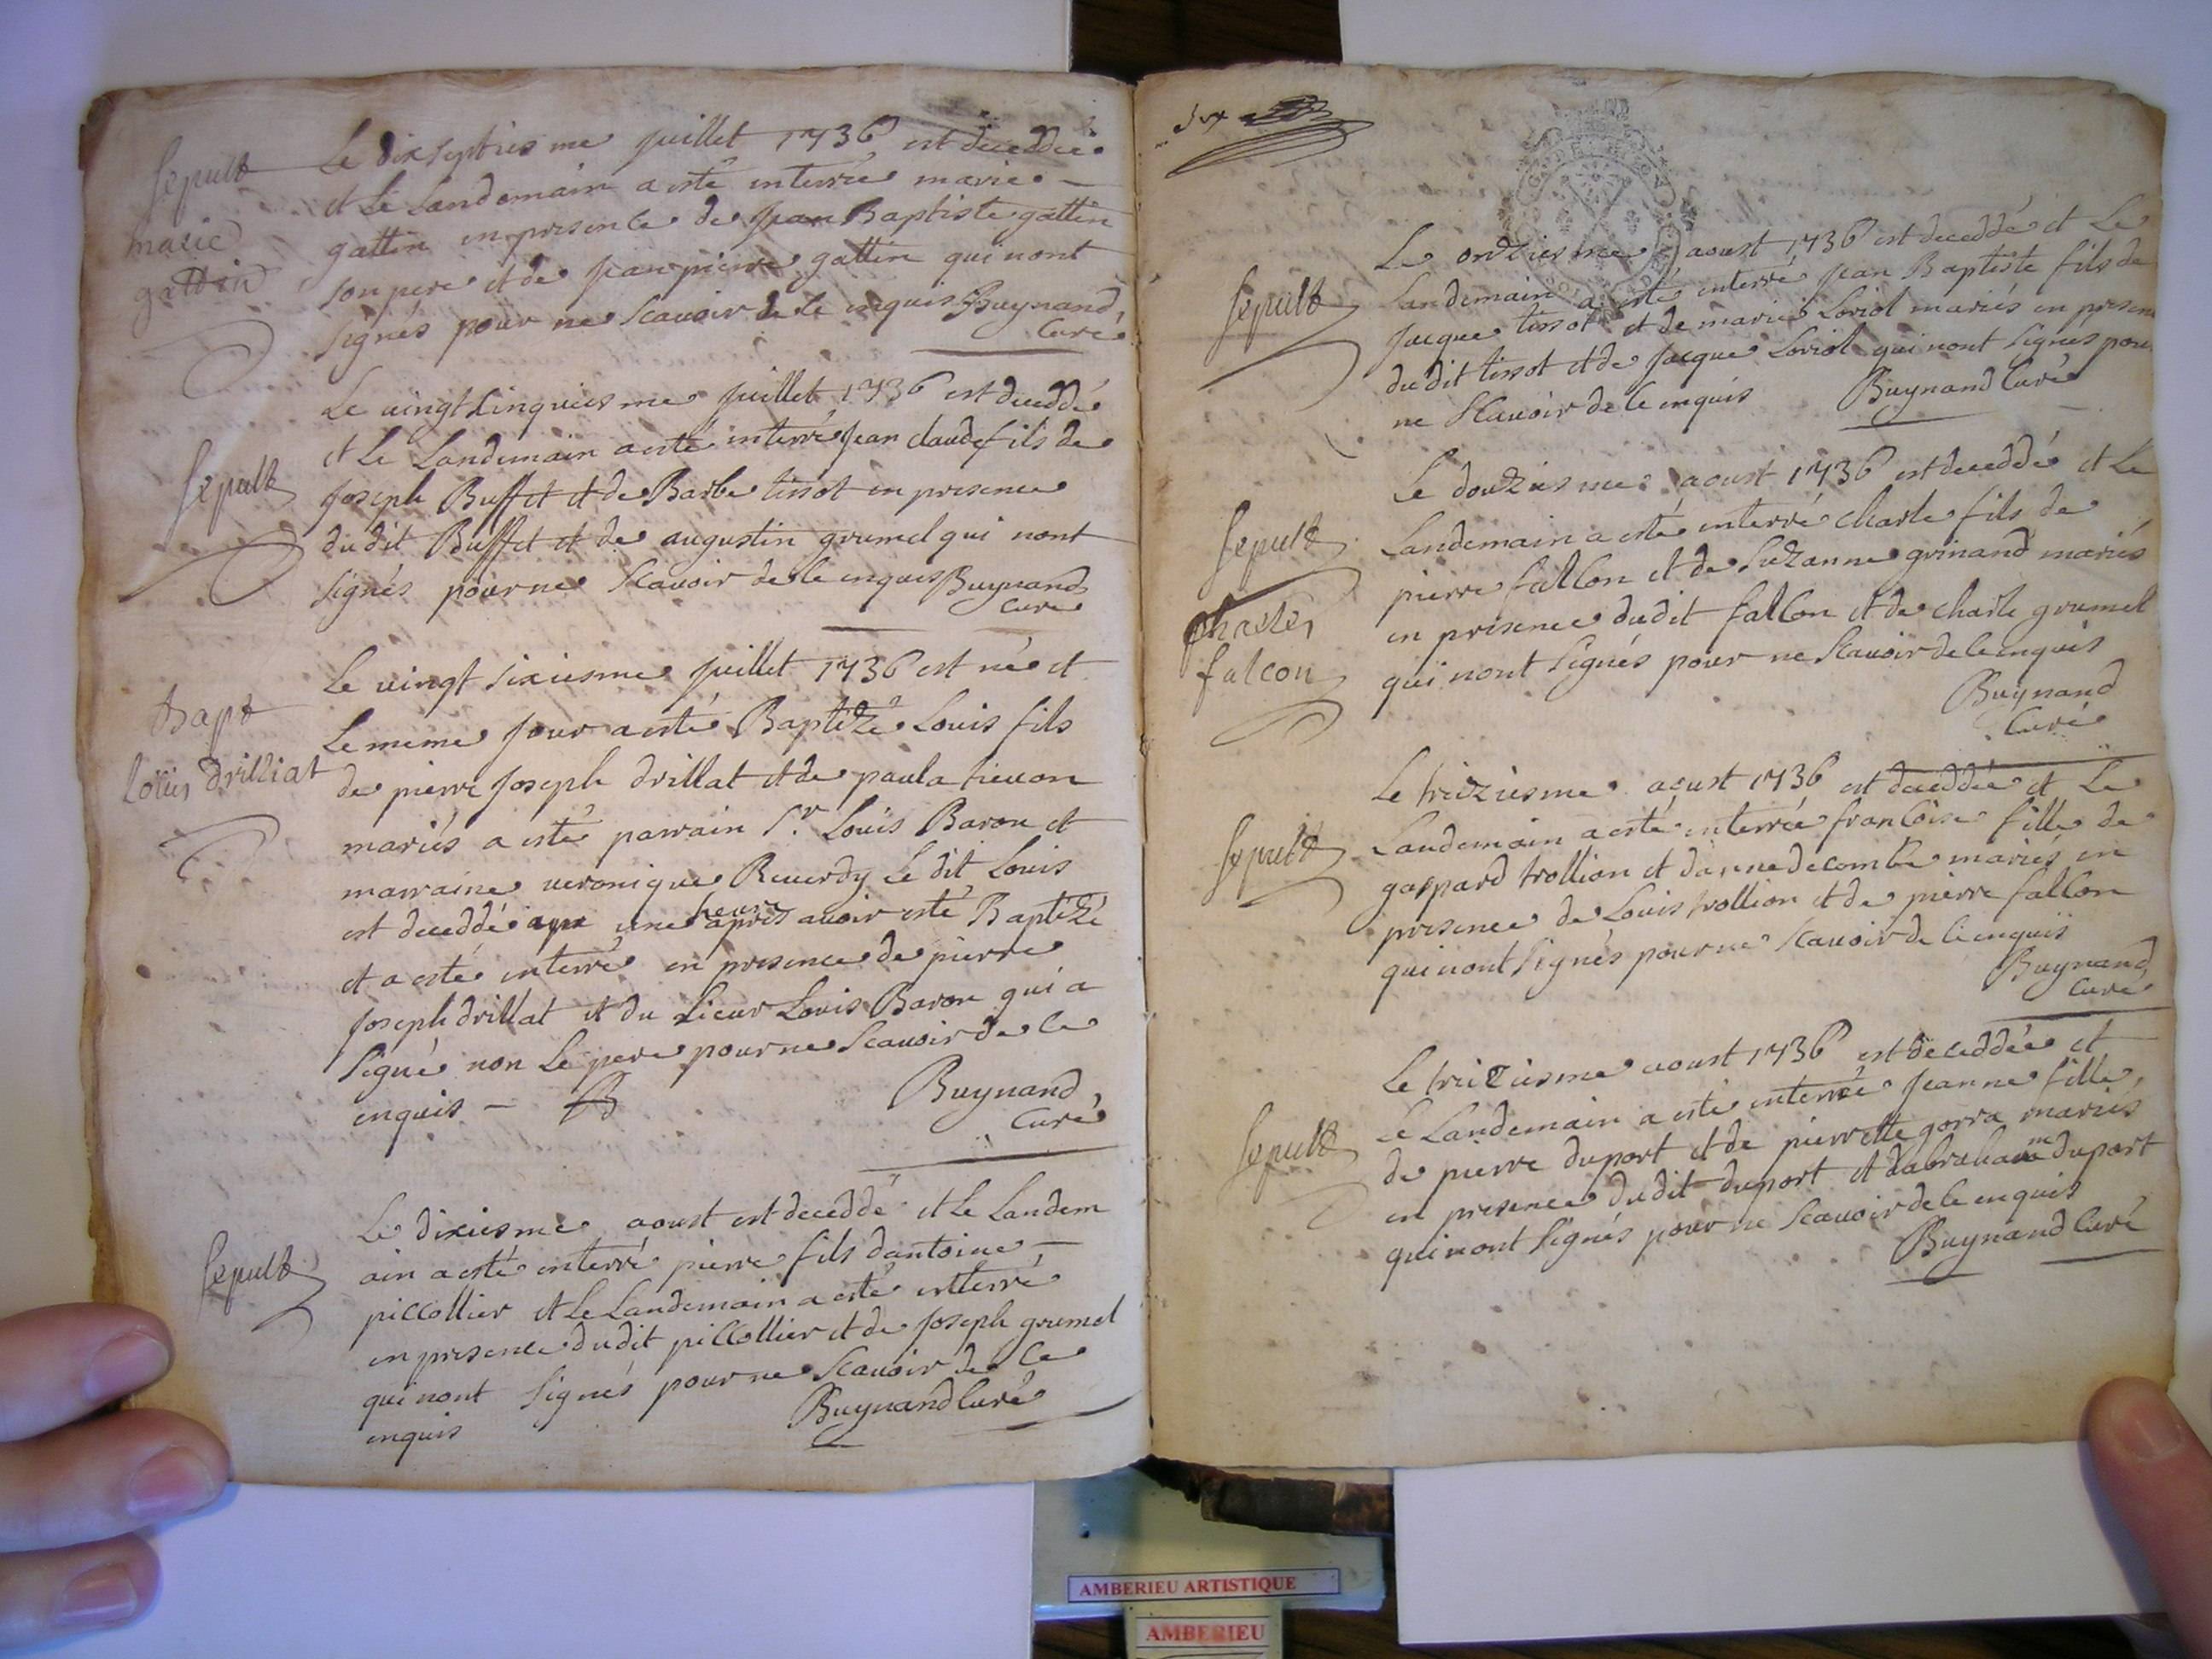 Sepult
marie
gattin
Le dixseptiesme juillet 1736 est deceddée
et Le Landemain a esté enterrée marie
gattin en presence de jean Baptiste gattin
son pere et de jean pierre gattin qui nont
signés pour ne scavoir de ce enquis Buynand
Curé
Sepult
Le vingt cinquiesme juillet 1736 est deceddé
et Le Landemain a esté enterré jean claude fils de
joseph Buffet et de Barbe tissot en presence
du dit Buffet et de augustin grumel qui nont
signés pour ne scavoir de ce enquis Buynand
Curé
Bapt
Loüis drilliat
Le vingt sixiesme juillet 1736 est né et
Le meme jour a esté Baptizé Louis fils
de pierre joseph drillat et de paula tievon
mariés a esté parrain Sr. Louis Baron et
marraine veronique Reverdy Le dit Louis
est deceddé une heure apres avoir esté Baptizé
et a esté enterré en presence de pierre
joseph drillat et du sieur Louis Baron qui a
signé non Le pere pour ne scavoir de ce
enquis - B Buynand
Curé
Sepult
Le dixiesme aoust est deceddé et Le Landem
ain a esté enterré pierre fils dantoine
piccollier et Le Landemain a esté enterré
en presence du dit piccollier et de joseph grumel
qui nont signés pour ne scavoir de ce
enquis Buynand Curé
Six
Sepult
Le onziesme aoust 1736 est deceddé et Le
Landemain a esté enterré jean Baptiste fils de
jacque tissot et de marie Loriol mariés en presen
du dit tissot et de jacque Loriol qui nont signés pour
ne scavoir de ce enquis Buynand Curé
Sepult
charle
falcon
Le douziesme aoust 1736 est deceddé et Le
Landemain a esté enterré charle fils de
pierre falcon et de suzanne grinand mariés
en presence du dit falcon et de charle grumel
qui nont signés pour ne scavoir de ce enquis
Buynand
Curé
Sepult
Le treiziesme aoust 1736 est deceddée et Le
Landemain a esté enterrée francoise fille de
gaspard trollion et danne decombe mariés en
presence de Louis trollion et de pierre falcon
qui nont signés pour ne scavoir de ce enquis
Buynand
Curé
Sepult
Le treiziesme aoust 1736 est deceddée et
Le Landemain a esté enterrée jeanne fille
de pierre duport et de pierrette gorra mariés
en presence du dit duport et dabraham duport
qui nont signés pour ne scavoir de ce enquis
Buynand Curé
AMBERIEU ARTISTIQUE
AMBERIEU